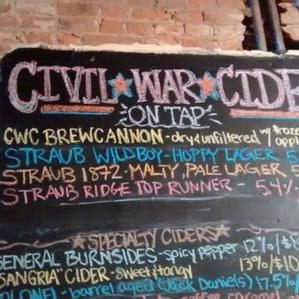 CIVIL WAR CIDE
ON TAP
CWC BREWCANNON - dry & unfiltered w/ froze
STRAUB WILDBOY - HOPPY LAGER 5
STRAUB 1872 - MALTY, PALE LAGER 5
STRAUB RIDGE TOP RUNNER - 5.4%
SPECIALTY CIDERS
GENERAL BURNSIDES - spicy pepper 12% / $1
"SANGRIA" CIDER - Sweet & tangy 13% / $10
barrel aged (Jack Daniels) 17.5%